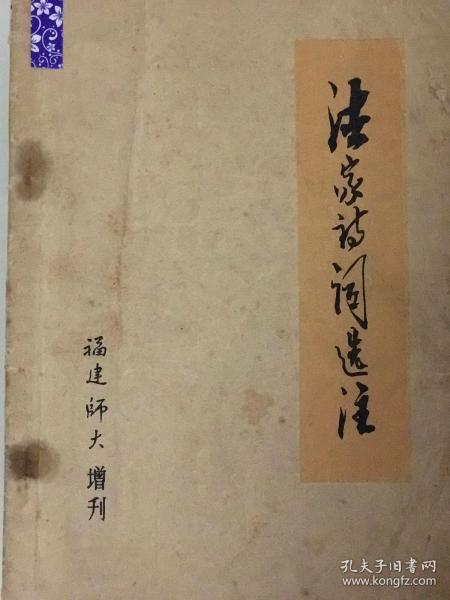 法家诗词选注
福建師大 增刊
孔夫子旧书网
www.kongfz.com